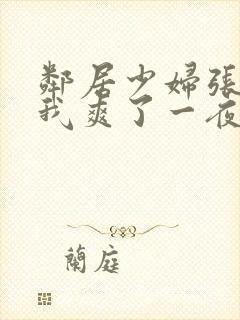 鄰居少婦張
我爽了一夜
蘭庭